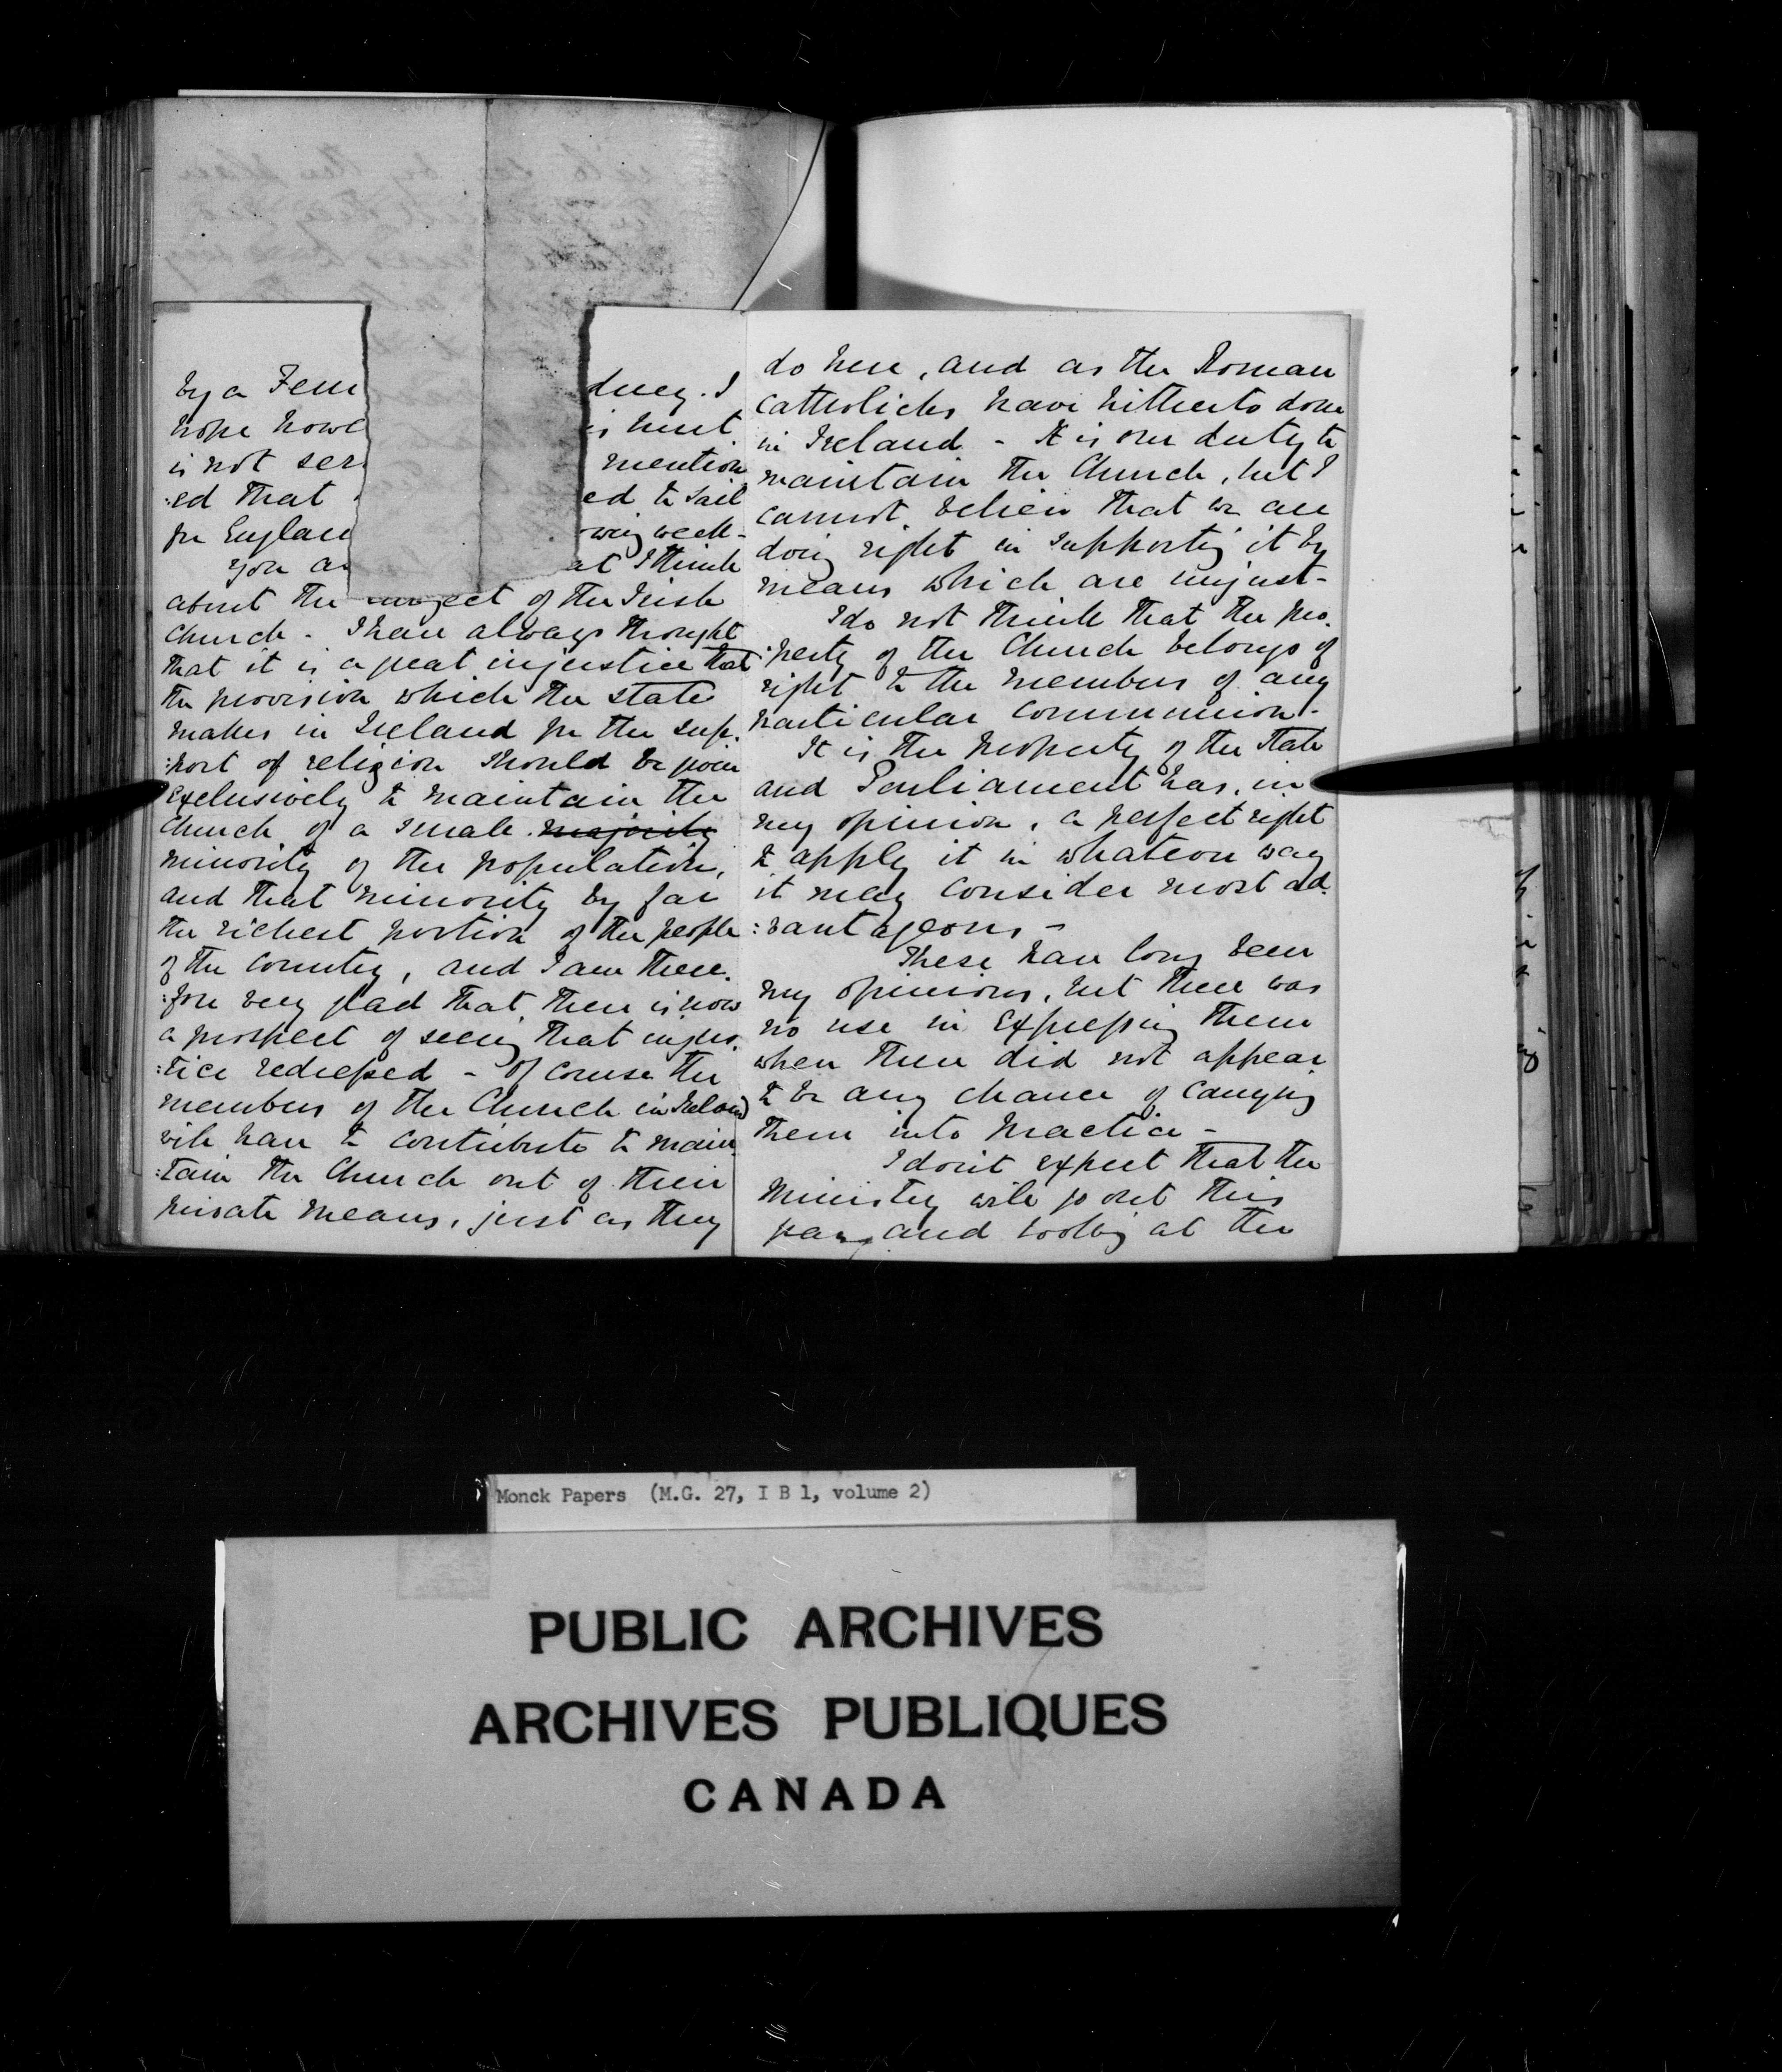 by a Feni
hope howe
is not ser
:ed that
for Englan
You a
dney. I
is hurt
mention
ed to sail
owing week -
at I think
about the subject of the Irish
Church - I have always thought
that it is a great injustice that
the provision which the state
makes in Ireland for the sup.
:port of religion should be given
exclusively to maintain the
Church of a small majority
minority of the population,
and that minority by far
the richest portion of the people
of the country, and I am there.
:fore very glad that there is now
a prospect of seeing that injus.
:tice redressed - Of course the
members of the Church in Ireland
will have to contribute to main.
:tain the Church out of their
private means, just as they
do here, and as the Roman
Catholicks have hitherto done
in Ireland - It is our duty to
maintain the Church, but I
cannot believe that we are
doing right in supporting it by
means which are unjust -
I do not think that the pro.
:perty of the Church belongs of
right to the members of any
particular communion -
It is the property of the State
and Parliament has, in
my opinion, a perfect right
to apply it in whatever way
it may consider most ad.
:vantageous -
These have long been
my opinions, but there was
no use in expressing them
when there did not appear
to be any chance of carrying
them into practice -
I don't expect that the
Ministry will go out this
year and looking at the
Monck Papers (M.G. 27, I B 1, volume 2)
PUBLIC ARCHIVES
ARCHIVES PUBLIQUES
CANADA